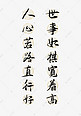 世事如棋宽着高
人心若路直行好